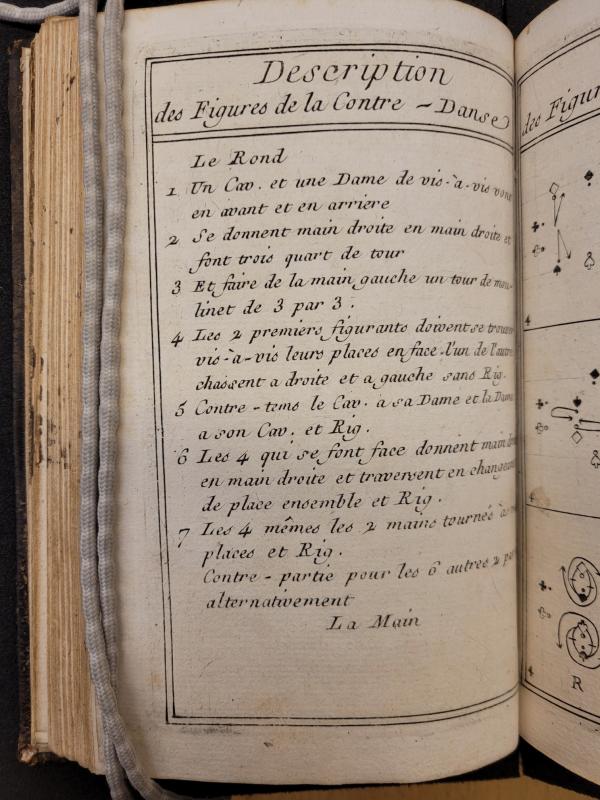 Description
des Figures de la Contre - Danse
Le Rond
1 Un Cav. et une Dame de vis-à-vis vont
en avant et en arriere
2 Se donnent main droite en main droite et
font trois quart de tour
3 Et faire de la main gauche un tour de mou-
linet de 3 par 3.
4 Les 2 premiers figurants doivent se trouver
vis-à-vis leurs places en face l'un de l'autre
chassent a droite et a gauche sans Rig.
5 Contre-tems le Cav. a sa Dame et la Dame
a son Cav. et Rig.
6 Les 4 qui se font face donnent main
en main droite et traversent en changeant
de place ensemble et Rig.
7 Les 4 mêmes les 2 mains tournés à
places et Rig.
Contre-partie pour les 6 autres 2 par
alternativement
La Main
des Figur
4
4
4
R